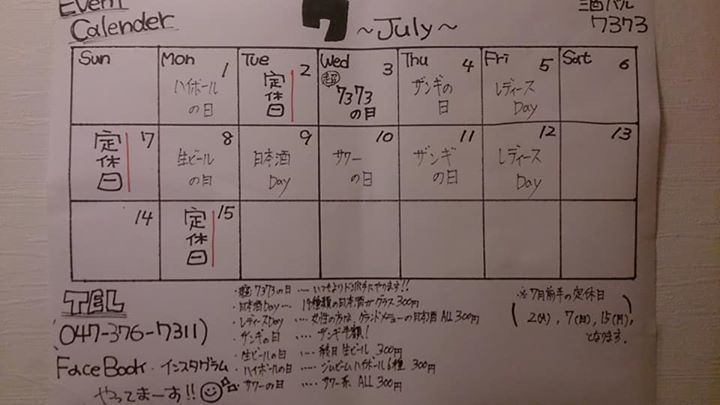 Event
Calender
7 ~July~
酒バル
7373
Sun Mon Tue Wed Thu Fri Sat
1 2 3 4 5 6
ハイボールの日
定休日
超 7373の日
ザンギの日
レディースDay
7 8 9 10 11 12 13
定休日
生ビールの日
日本酒Day
サワーの日
ザンギの日
レディースDay
14 15
定休日
TEL
(047-376-7311)
FaceBook・インスタグラム
やってまーす!!
・超7373の日 …… いつもよりド派手にやります!!
・日本酒Day …… 種類の日本酒がグラス300円
・レディースDay …… 女性の方は、グランドメニューの日本酒 ALL 300円
・ザンギの日 …… ザンギ半額!
・生ビールの日 …… 終日 生ビール 300円
・ハイボールの日 …… ジムビームハイボール 300円
・サワーの日 …… サワー系 ALL 300円
※7月前半の定休日
(2(火), 7(日), 15(月),
となります。)